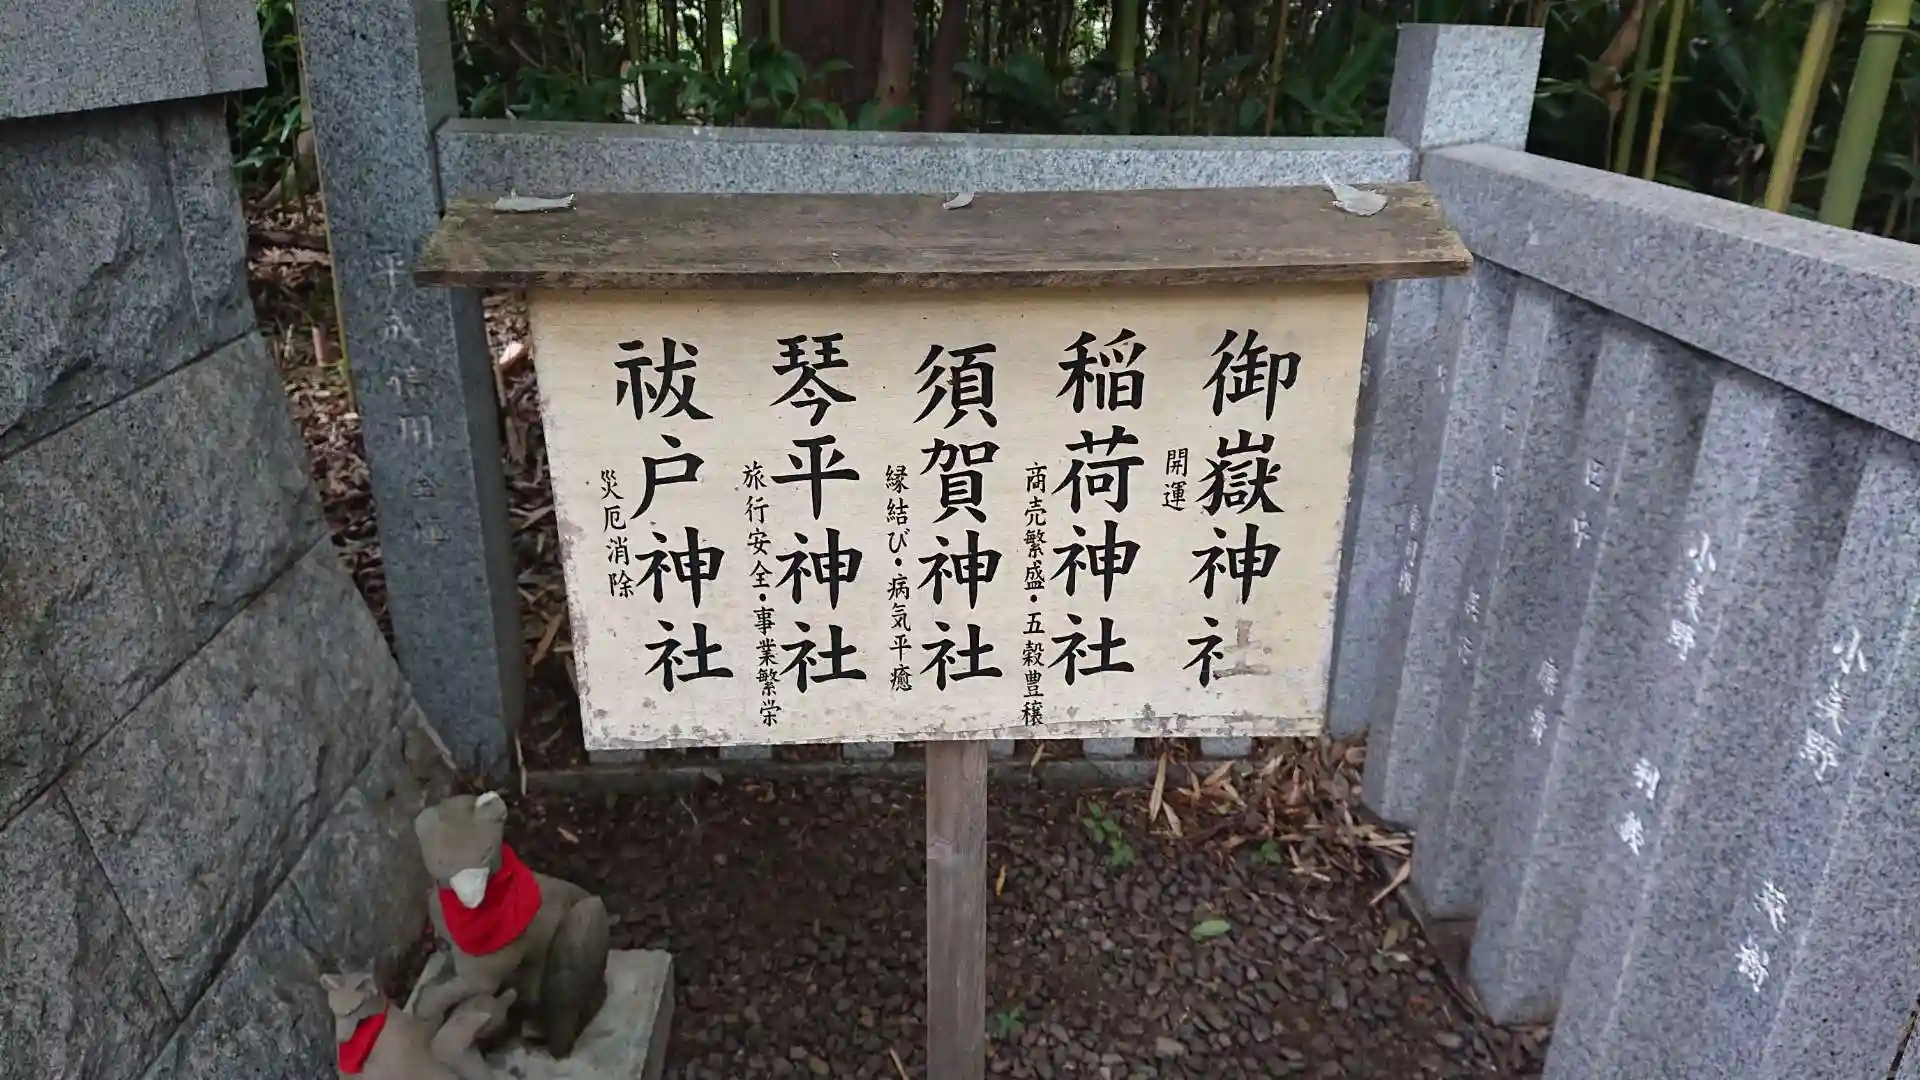 御嶽神社
開運
稲荷神社
商売繁盛・五穀豊穣
須賀神社
縁結び・病気平癒
琴平神社
旅行安全・事業繁栄
祓戸神社
災厄消除
平成信用金庫